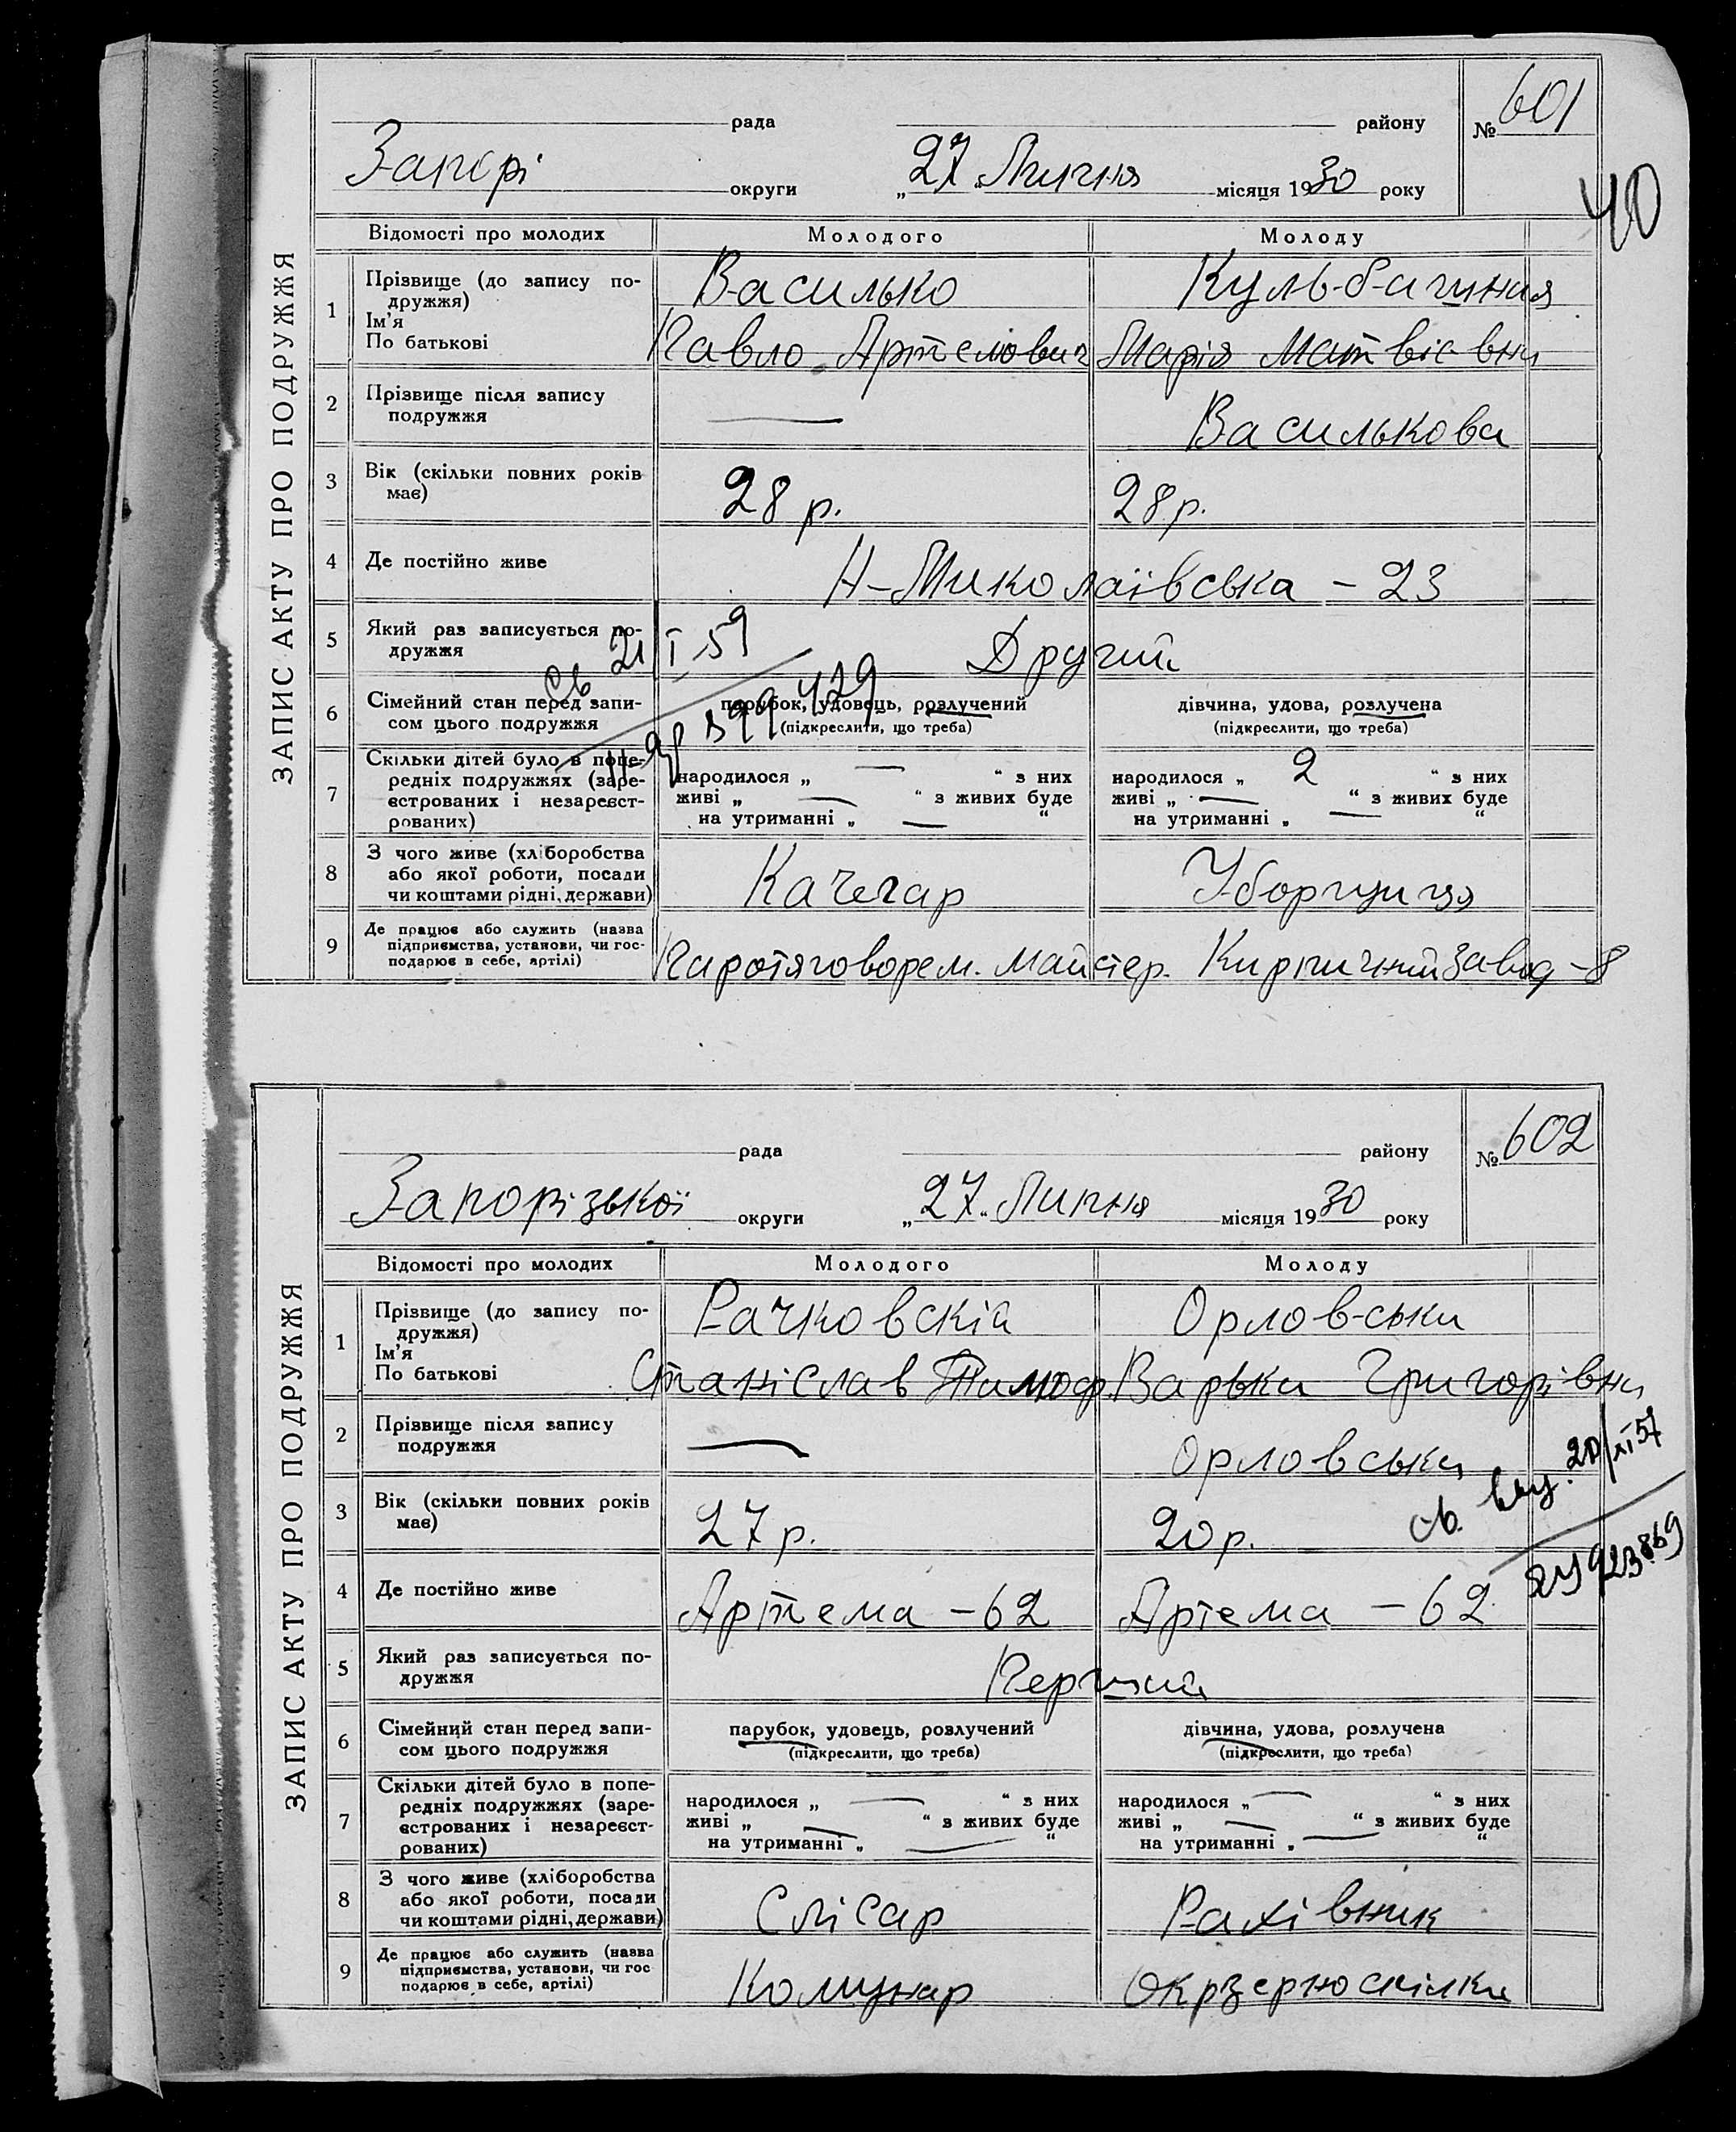 ЗАПИС АКТУ ПРО ПОДРУЖЖЯ
рада району № 601
Запорі округи „27" Липня місяця 1930 року
40
Відомості про молодих Молодого Молоду
1 Прізвище (до запису по-
дружжя)
Ім'я
По батькові
Василько
Павло Артемович
Марія Матвіївна
2 Прізвище після запису
подружжя
— Василькова
3 Вік (скільки повних років
має)
28 р. 28 р.
4 Де постійно живе Н-Миколаївська - 23
5 Який раз записується по-
дружжя
Другий
21/I 59
6 Сімейний стан перед запи-
сом цього подружжя
парубок, удовець, розлучений
(підкреслити, що треба)
дівчина, удова, розлучена
(підкреслити, що треба)
7 Скільки дітей було в попе-
редніх подружжях (заре-
єстрованих і незареєст-
рованих)
народилося „ — " з них
живі „ — " з живих буде
на утриманні „ — "
народилося „ 2 " з них
живі „ — " з живих буде
на утриманні „ — "
8 З чого живе (хліборобства
або якої роботи, посади
чи коштами рідні, держави)
Качегар Уборщиця
9 Де працює або служить (назва
підприємства, установи, чи гос-
подарює в себе, артілі)
Паротяговорем. майстер. Кирпичний завод - 8
ЗАПИС АКТУ ПРО ПОДРУЖЖЯ
рада району № 602
Запорізької округи „27" Липня місяця 1930 року
Відомості про молодих Молодого Молоду
1 Прізвище (до запису по-
дружжя)
Ім'я
По батькові
Рачковскій Орловська
Станіслав Тимоф. Варька Григорівна
2 Прізвище після запису
подружжя
— Орловська
20/XI 57
3 Вік (скільки повних років
має)
27 р. 20 р.
4 Де постійно живе Артема - 62 Артема - 62
5 Який раз записується по-
дружжя
Перший
6 Сімейний стан перед запи-
сом цього подружжя
парубок, удовець, розлучений
(підкреслити, що треба)
дівчина, удова, розлучена
(підкреслити, що треба)
7 Скільки дітей було в попе-
редніх подружжях (заре-
єстрованих і незареєст-
рованих)
народилося „ — " з них
живі „ — " з живих буде
на утриманні „ — "
народилося „ — " з них
живі „ — " з живих буде
на утриманні „ — "
8 З чого живе (хліборобства
або якої роботи, посади
чи коштами рідні, держави)
Слісар Рахівник
9 Де працює або служить (назва
підприємства, установи, чи гос
подарює в себе, артілі)
Комунар Окрзерноспілка